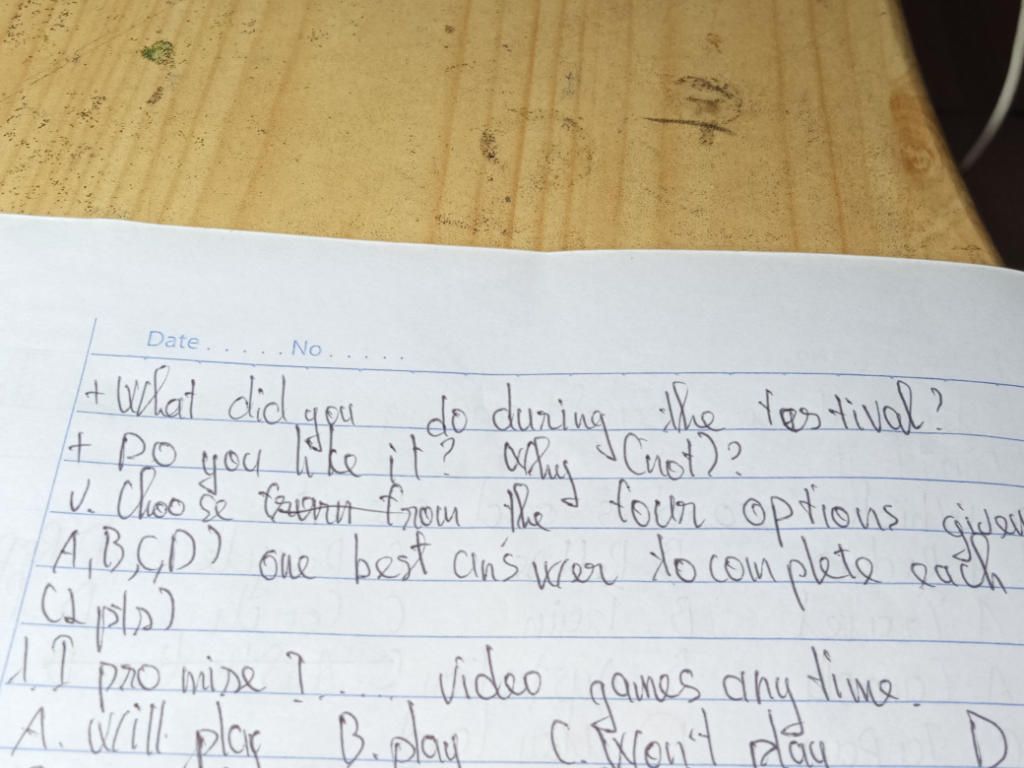 Date ..... No .....
+ What did you do during the festival?
+ Do you like it? Why (not)?
V. Choose from the four options given
A, B, C, D) one best answer to complete each
(2 pts)
1. I promise I ..... video games any time.
A. will play B. play C. won't play D